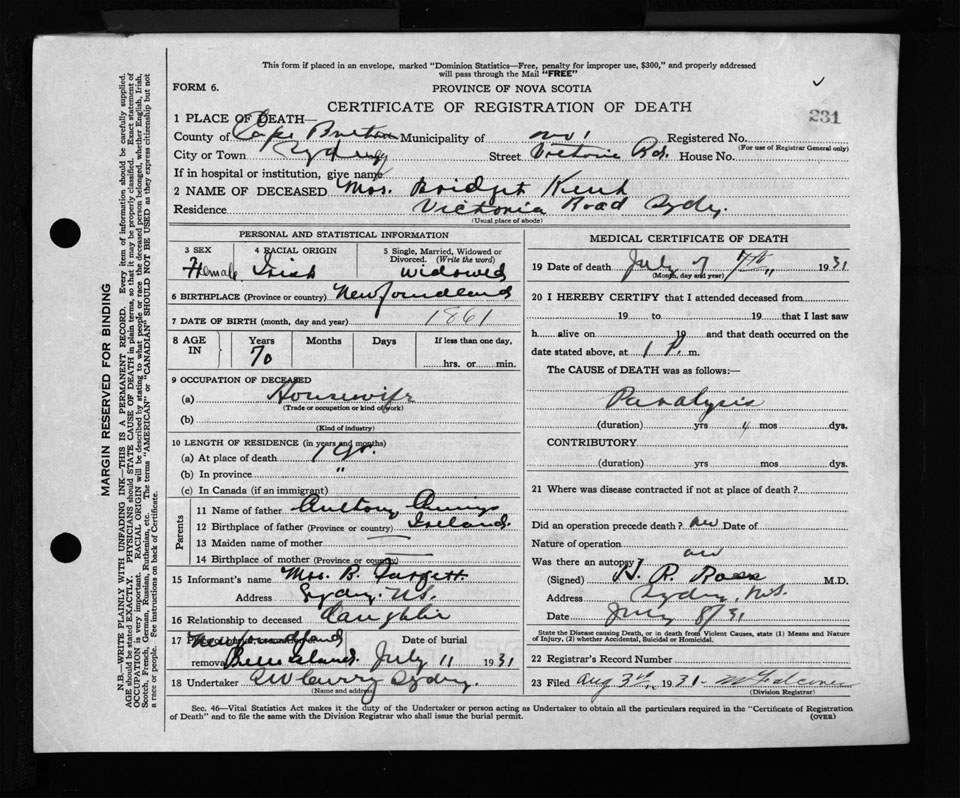 This form if placed in an envelope, marked "Dominion Statistics—Free, penalty for improper use, $300," and properly addressed
will pass through the Mail "FREE"
FORM 6.
PROVINCE OF NOVA SCOTIA
231
CERTIFICATE OF REGISTRATION OF DEATH
1 PLACE OF DEATH—
County of Cape Breton Municipality of No 1 Registered No.
(For use of Registrar General only)
City or Town Sydney Street Victoria Rd. House No.
If in hospital or institution, give name
2 NAME OF DECEASED Mrs. Bridget Kent
Residence Victoria Road Sydney.
(Usual place of abode)
PERSONAL AND STATISTICAL INFORMATION
3 SEX 4 RACIAL ORIGIN 5 Single, Married, Widowed or
Divorced. (Write the word)
Female Irish widowed
6 BIRTHPLACE (Province or country) Newfoundland
7 DATE OF BIRTH (month, day and year) 1861
8 AGE Years Months Days If less than one day,
IN 70 hrs. or min.
9 OCCUPATION OF DECEASED
(a) Housewife
(Trade or occupation or kind of work)
(b)
(Kind of industry)
10 LENGTH OF RESIDENCE (in years and months)
(a) At place of death 1 yr.
(b) In province "
(c) In Canada (if an immigrant)
Parents
11 Name of father
12 Birthplace of father (Province or country) Ireland.
13 Maiden name of mother —
14 Birthplace of mother (Province or country) —
15 Informant's name Mrs. B.
Address Sydney, N.S.
16 Relationship to deceased daughter
17 Date of burial
removal Belle Island. July 11 1931
18 Undertaker Sydney.
(Name and address)
MEDICAL CERTIFICATE OF DEATH
19 Date of death July 7 7th 1931
(Month, day and year)
20 I HEREBY CERTIFY that I attended deceased from
19 to 19 that I last saw
h alive on 19 and that death occurred on the
date stated above, at 1 P. m.
The CAUSE of DEATH was as follows:—
Paralysis
(duration) yrs 4 mos dys.
CONTRIBUTORY
(duration) yrs mos dys.
21 Where was disease contracted if not at place of death?
Did an operation precede death? no Date of
Nature of operation
Was there an autopsy? no
(Signed) H. R. Ross M.D.
Address Sydney, N.S.
Date July 8/31
State the Disease causing Death, or in death from Violent Causes, state (1) Means and Nature
of Injury, (2) whether Accidental, Suicidal or Homicidal.
22 Registrar's Record Number
23 Filed Aug 3rd, 1931
(Division Registrar)
Sec. 46—Vital Statistics Act makes it the duty of the Undertaker or person acting as Undertaker to obtain all the particulars required in the "Certificate of Registration
of Death" and to file the same with the Division Registrar who shall issue the burial permit.
(OVER)
MARGIN RESERVED FOR BINDING
N.B.—WRITE PLAINLY WITH UNFADING INK—THIS IS A PERMANENT RECORD. Every item of information should be carefully supplied.
AGE should be stated EXACTLY. PHYSICIANS should STATE CAUSE OF DEATH in plain terms, so that it may be properly classified. Exact statement of
OCCUPATION is very important. RACIAL ORIGIN will be described by stating to what people or race the deceased person belonged, whether English, Irish,
Scotch, French, German, Russian, Ruthenian, etc. The terms "AMERICAN" or "CANADIAN" SHOULD NOT BE USED as they express citizenship but not
a race or people. See instructions on back of Certificate.